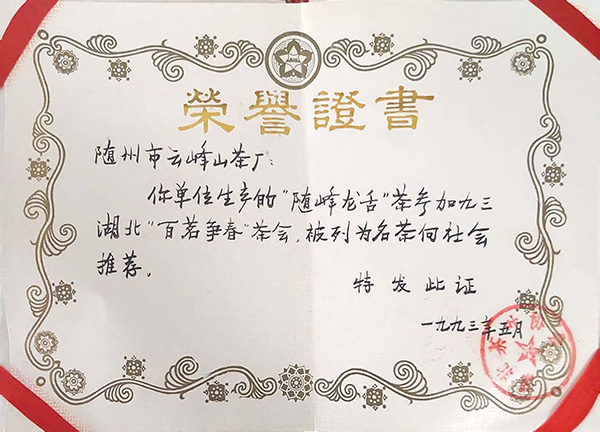 榮譽證書
随州市云峰山茶厂：
你单位生产的“随峰龙舌”茶参加九三
湖北“百茗争春”茶会，被列为名茶向社会
推荐。
特发此证
一九九三年五月